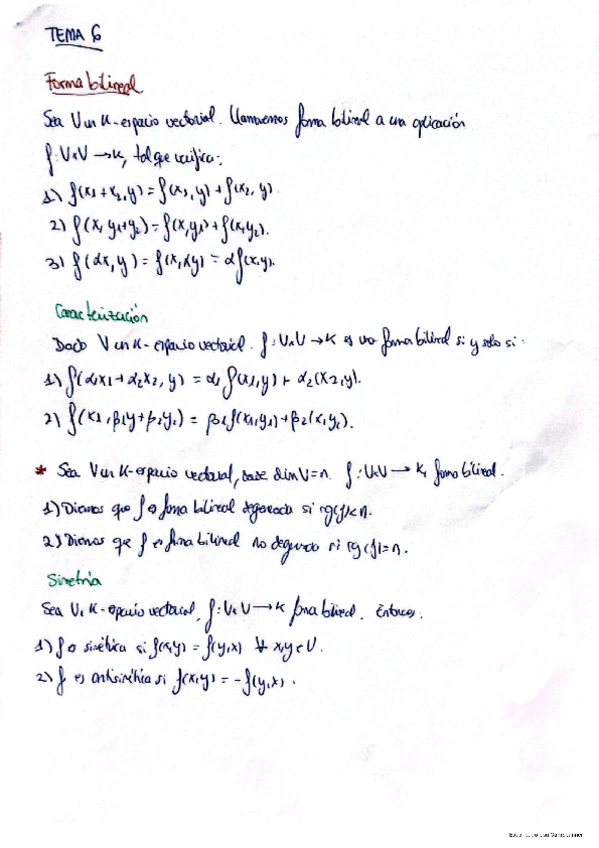 TEMA 6
Forma bilineal
Sea V un K-espacio vectorial. Llamaremos forma bilineal a una aplicación
f: VxV → K, tal que verifica:
1) f(x1 + x2, y) = f(x1, y) + f(x2, y).
2) f(x, y1+y2) = f(x,y1) + f(x,y2).
3) f(αx, y) = f(x, αy) = αf(x,y).
Caracterización
Dado V un K-espacio vectorial. f: VxV → K es una forma bilineal si y solo si:
1) f(α1x1 + α2x2, y) = α1 f(x1, y) + α2(x2, y).
2) f(x1, β1y + β2y2) = β1f(x1, y1) + β2(x1, y2).
* Sea V un K-espacio vectorial, base dim V=n. f: VxV → K, forma bilineal.
1) Diremos que f es forma bilineal degenerada si rg(f)<n.
2) Diremos que f es forma bilineal no degenerada si rg(f)=n.
Simetría
Sea V, K-espacio vectorial, f: VxV → K forma bilineal. Entonces:
1) f es simétrica si f(x,y) = f(y,x) ∀ x,y ∈ V.
2) f es antisimétrica si f(x,y) = -f(y,x).